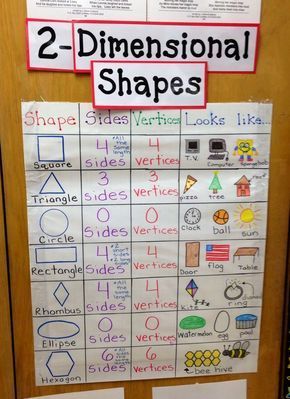 2-Dimensional
Shapes
Shape Sides Vertices Looks like...
Square
4 sides
*All the same length
4 vertices
T.V. Computer Spongebob
Triangle
3 sides
3 vertices
pizza tree
Circle
0 sides
0 vertices
Clock ball sun
Rectangle
4 sides
*2 short sides
*2 long sides
4 vertices
Door flag Table
Rhombus
4 sides
*All the same length
4 vertices
kite ring
Ellipse
0 sides
0 vertices
Watermelon egg pool
Hexagon
6 sides
6 vertices
bee hive